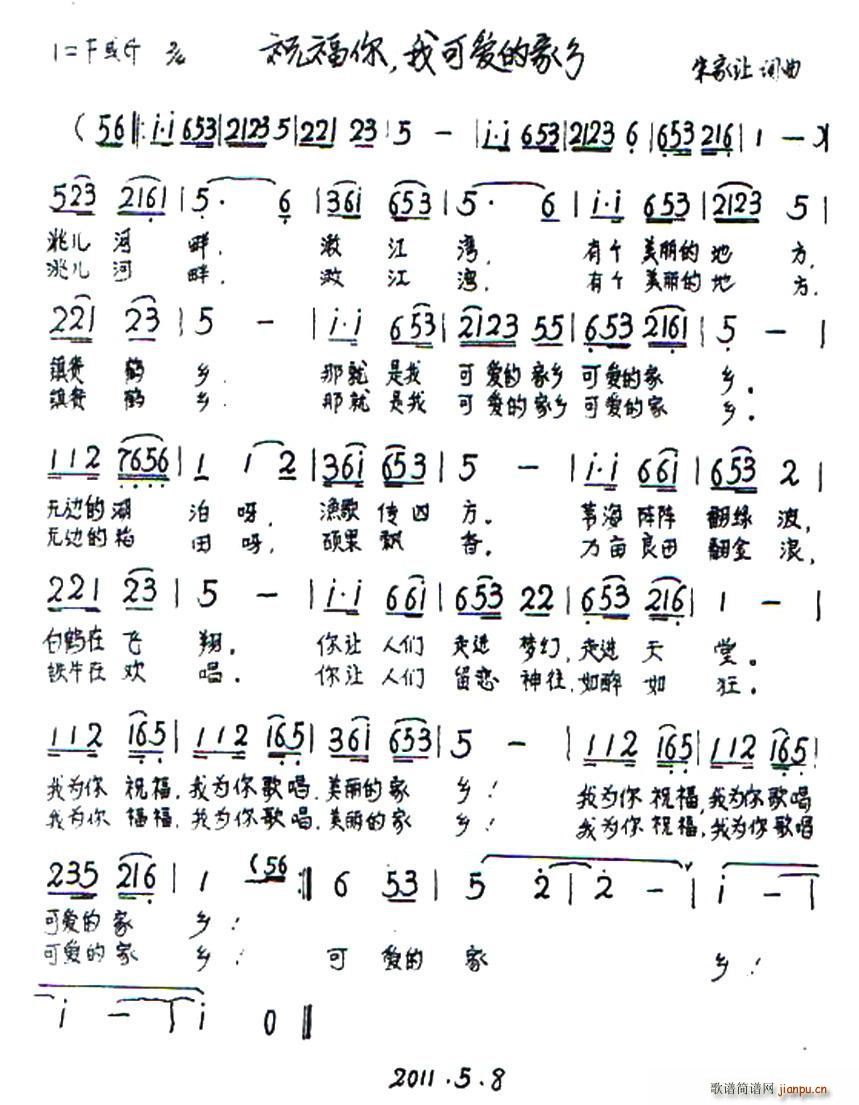 1=F或G 2/4 祝福你,我可爱的家乡 朱家让 词曲
(56 |: i·i 653 | 2123 5 | 221 23 | 5 - | i·i 653 | 2123 6 | 653 216 | 1 - )|
523 2161 | 5· 6 | 361 653 | 5· 6 | i·i 653 | 2123 5 |
洮儿河畔, 江湾, 有个美丽的地方,
洮儿河畔, 江湾, 有个美丽的地方,
221 23 | 5 - | i·i 653 | 2123 55 | 653 2161 | 5 - |
镇赉鹤乡. 那就是我可爱的家乡可爱的家乡。
镇赉鹤乡. 那就是我可爱的家乡可爱的家乡。
112 7656 | 1 1 2 | 36i 653 | 5 - | i·i 66i | 653 2 |
无边的湖泊呀, 渔歌传四方。 苇海阵阵翻绿波,
无边的稻田呀, 硕果飘香。 万亩良田翻金浪,
221 23 | 5 - | i·i 66i | 653 22 | 653 216 | 1 - |
白鹤在飞翔。 你让人们走进梦幻,走进天堂。
铁牛在欢唱。 你让人们留恋神往,如醉如狂。
112 165 | 112 165 | 36i 653 | 5 - | 112 165 | 112 165 |
我为你祝福,我为你歌唱,美丽的家乡! 我为你祝福,我为你歌唱
我为你福福,我为你歌唱,美丽的家乡! 我为你祝福,我为你歌唱
235 216 | 1 (56 :|| 6 53 | 5 2 | 2 - | i - |
可爱的家乡!
可爱的家乡! 可爱的家乡!
i - | i 0 ||
2011.5.8
歌谱简谱网
jianpu.cn